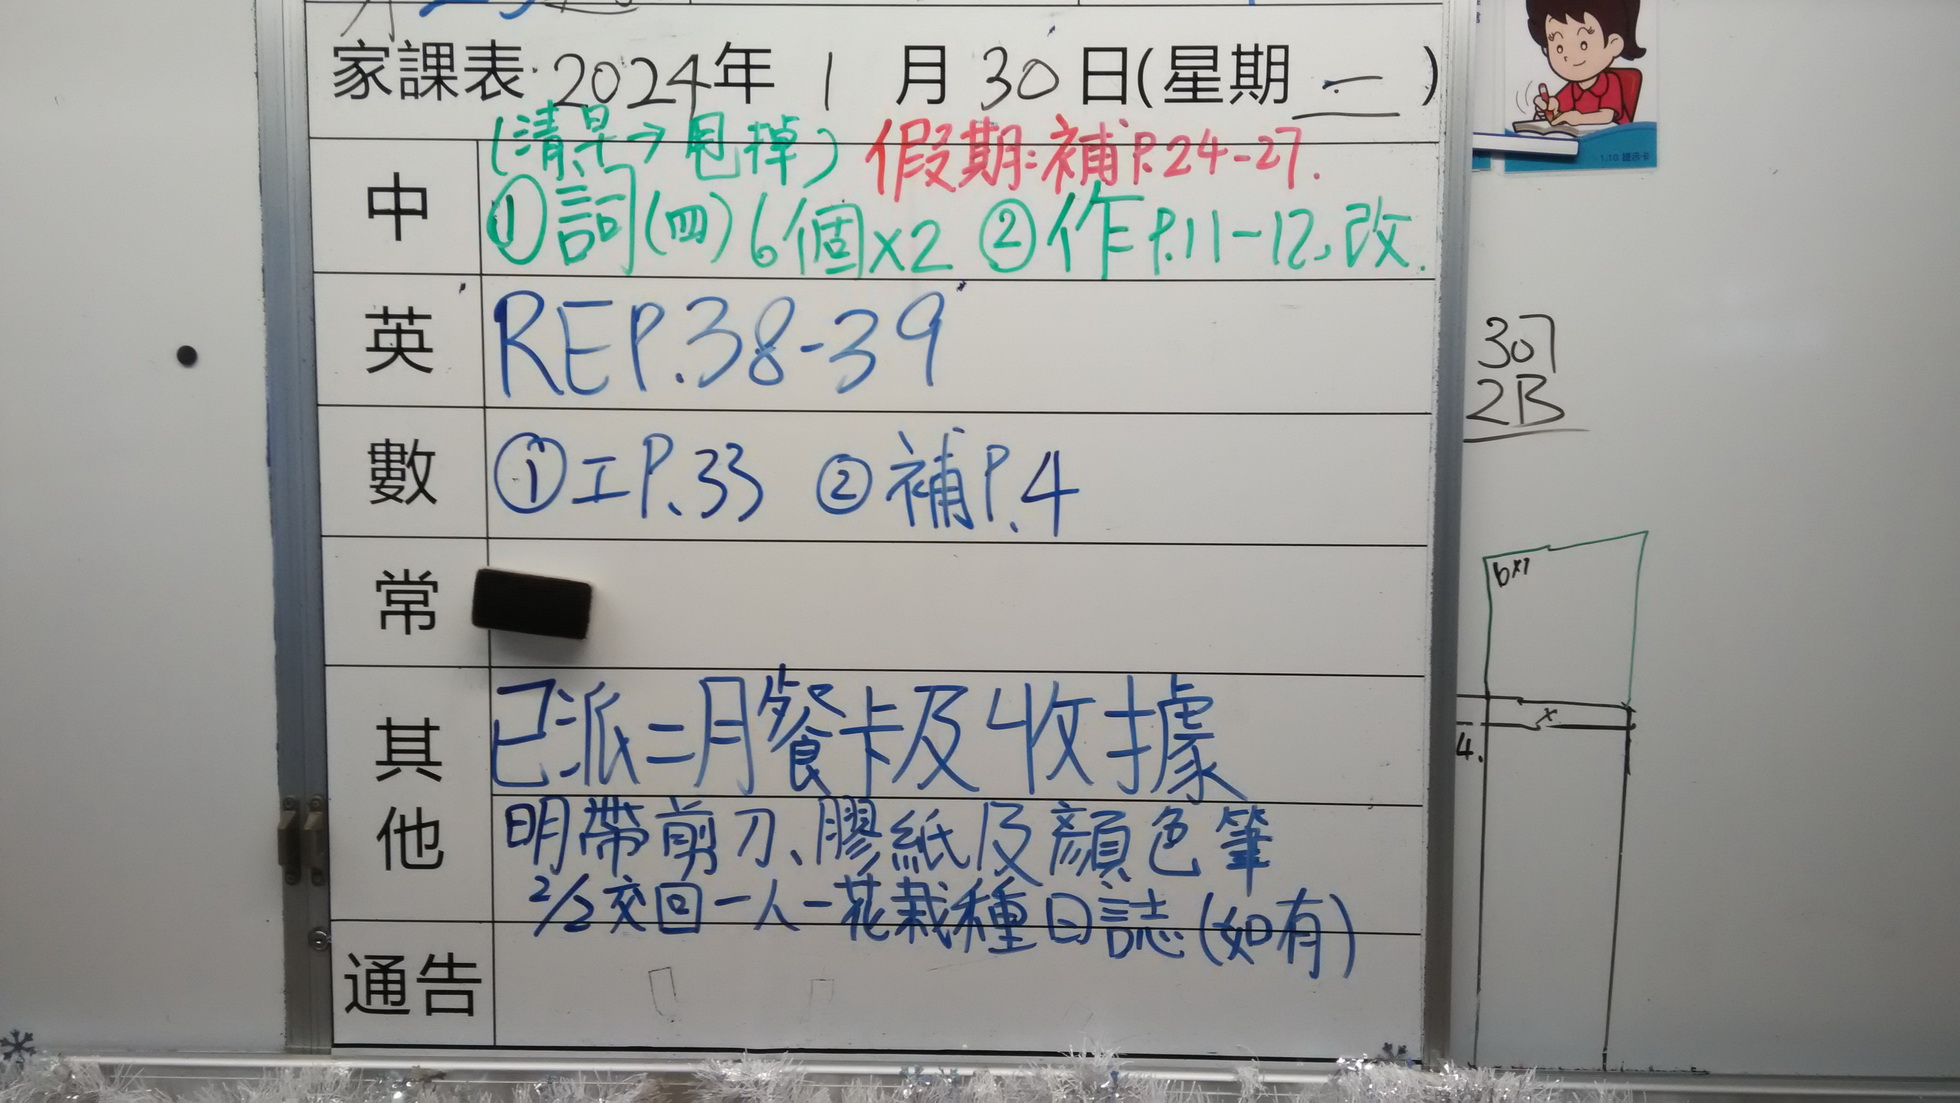 家課表 2024年 1 月 30 日(星期 二 )
中
(清早→甩掉) 假期:補P.24-27.
①詞(四)6個x2 ②作P.11-12,改.
英
REP.38-39
數
①工P.33 ②補P.4
常
其他
已派二月餐卡及收據
明帶剪刀、膠紙及顏色筆
2/2交回一人一花栽種日誌(如有)
通告
307
2B
4.
x